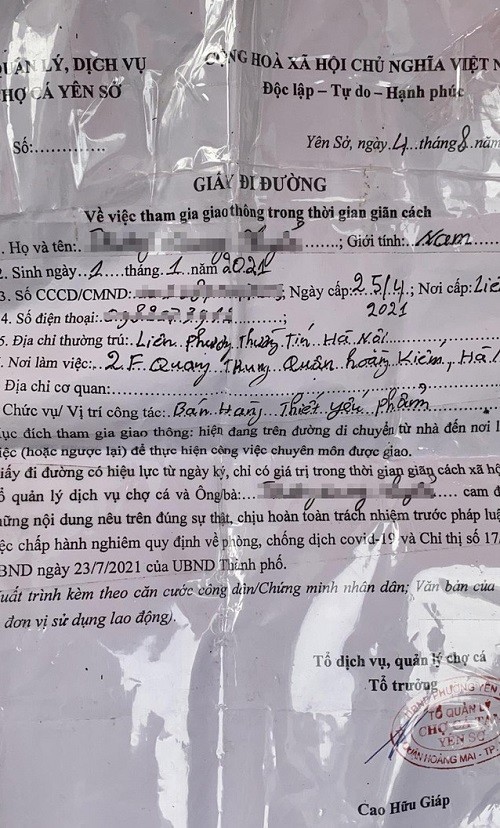 QUẢN LÝ, DỊCH VỤ
CHỢ CÁ YÊN SỞ
CỘNG HOÀ XÃ HỘI CHỦ NGHĨA VIỆT N
Độc lập – Tự do – Hạnh phúc
Số:..............
Yên Sở, ngày.4..tháng8.năm
GIẤY ĐI ĐƯỜNG
Về việc tham gia giao thông trong thời gian giãn cách
1. Họ và tên: ......; Giới tính:..Nam
2. Sinh ngày..1....tháng.1..năm 2021
3. Số CCCD/CMND: ; Ngày cấp:25/4.; Nơi cấp:Liê
2021
4. Số điện thoại:
5. Địa chỉ thường trú:. Liên Phương Thường Tín Hà Nội
Nơi làm việc: 2.F. Quang Trung Quận hoàng Kiếm, Hà
Địa chỉ cơ quan:
Chức vụ/ Vị trí công tác: Bán Hàng Thiết yếu phẩm
ục đích tham gia giao thông: hiện đang trên đường di chuyển từ nhà đến nơi l
iệc (hoặc ngược lại) để thực hiện công việc chuyên môn được giao.
Giấy đi đường có hiệu lực từ ngày ký, chỉ có giá trị trong thời gian giãn cách xã hộ
ổ quản lý dịch vụ chợ cá và Ông/bà: cam đ
hững nội dung nêu trên đúng sự thật, chịu hoàn toàn trách nhiệm trước pháp luậ
ệc chấp hành nghiêm quy định về phòng, chống dịch covid-19 và Chỉ thị số 17/
BND ngày 23/7/2021 của UBND Thành phố.
Xuất trình kèm theo căn cước công dân/Chứng minh nhân dân; Văn bản của
đơn vị sử dụng lao động).
Tổ dịch vụ, quản lý chợ cá
Tổ trưởng
PHƯỜNG YÊN
TỔ QUẢN LÝ
CHỢ CÁ
YÊN SỞ
QUẬN HOÀNG MAI - TP
Cao Hữu Giáp